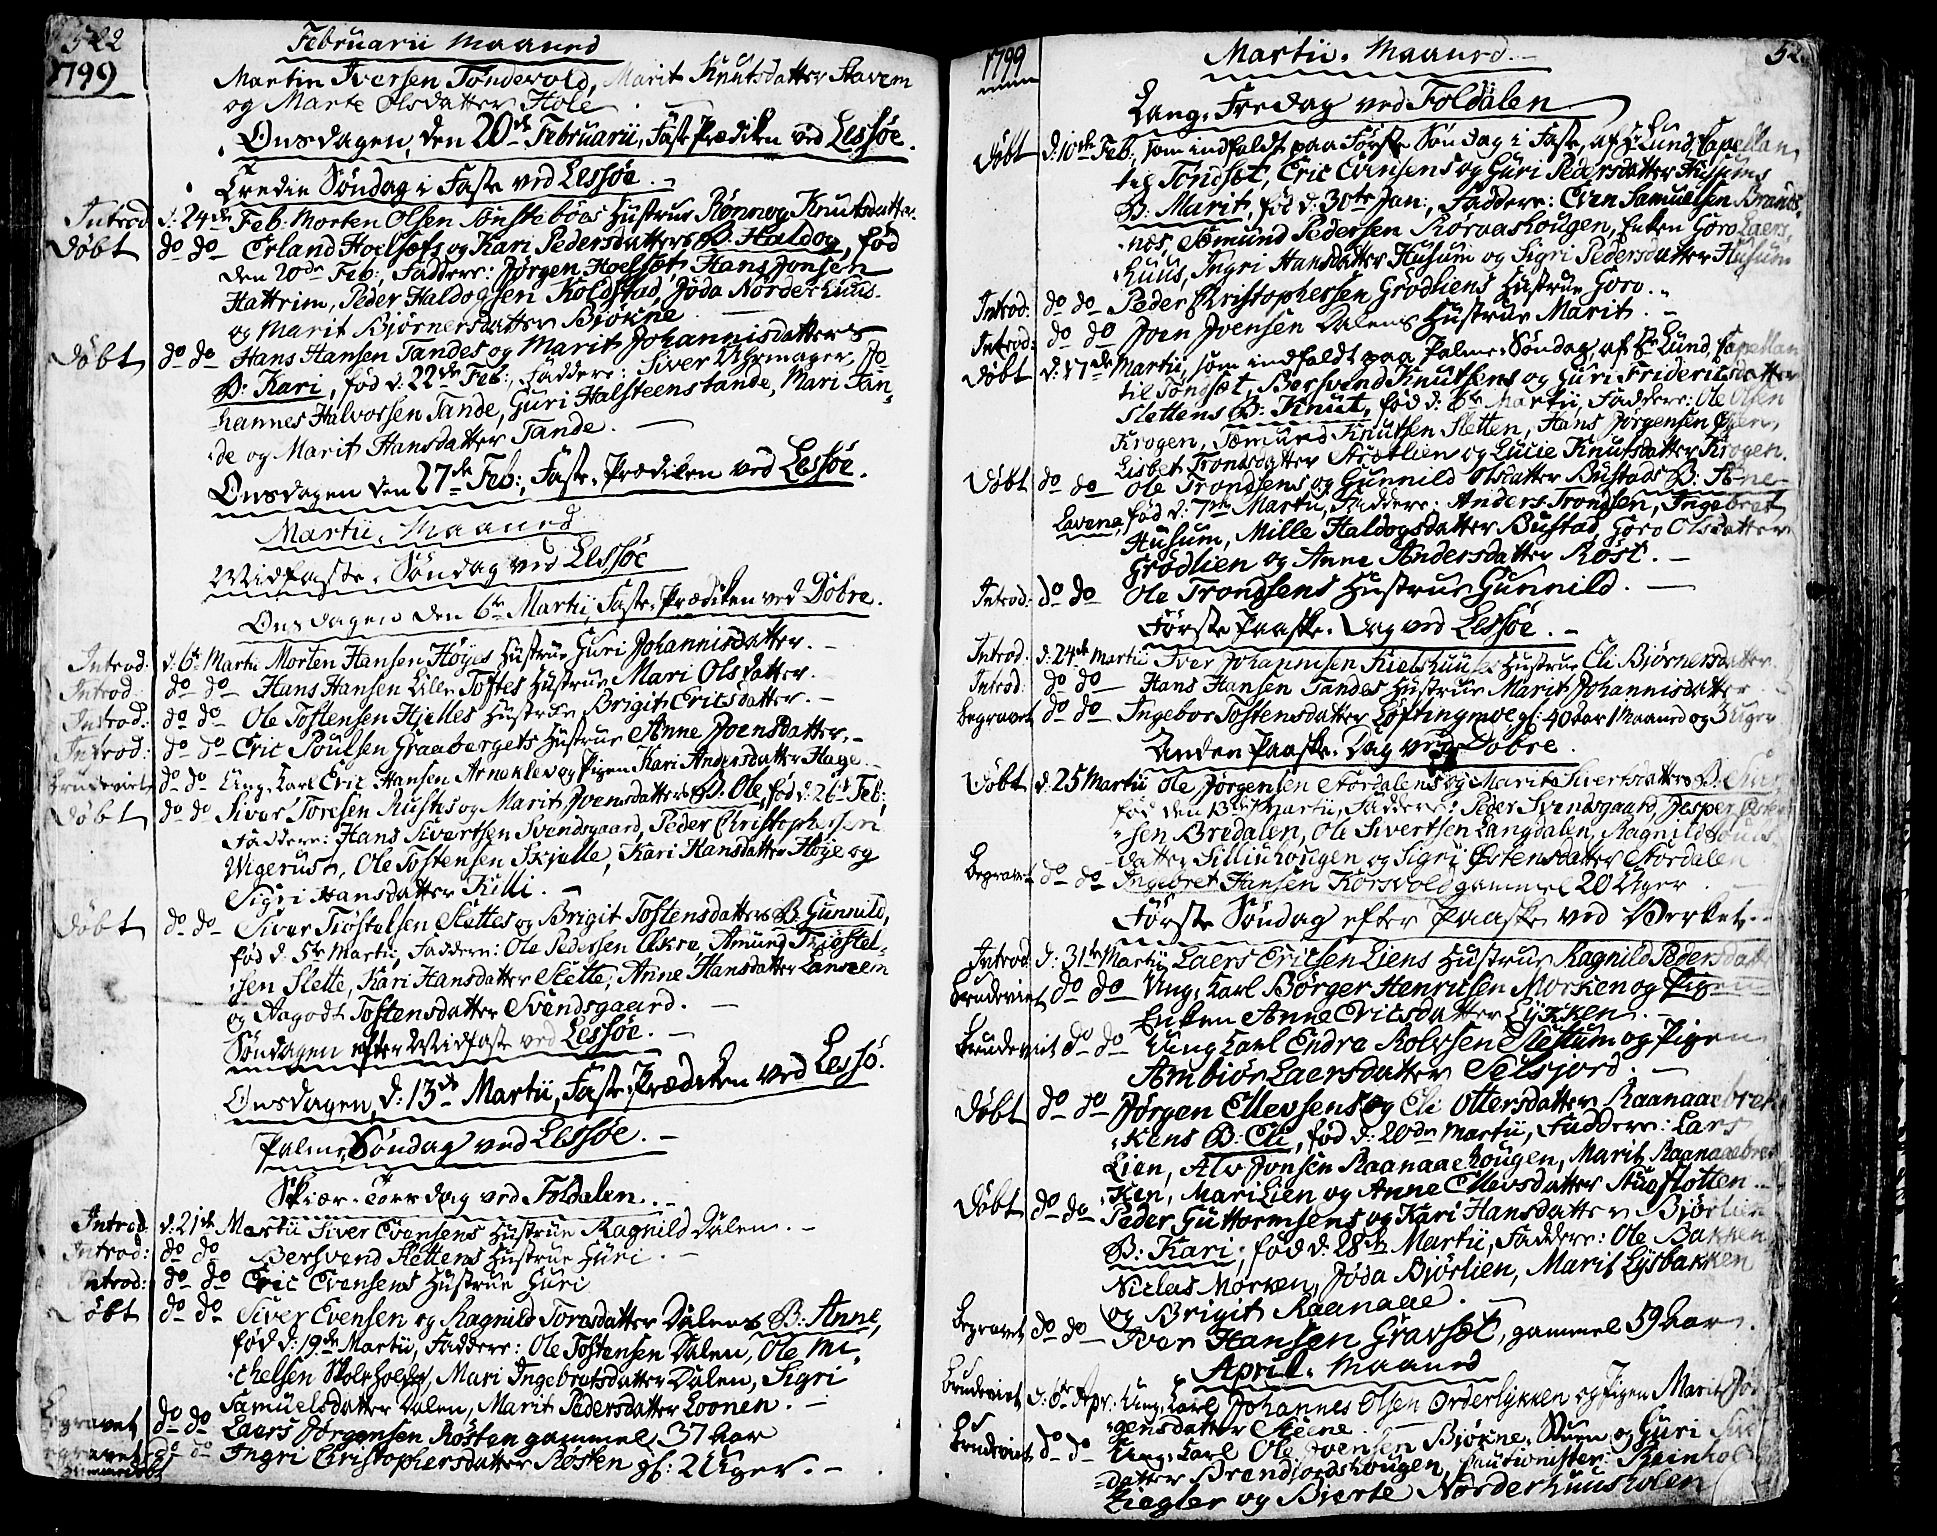 522
1799
Februarii Maaned
Martin Iversen Tøndevold, Marit Knutsdatter Stavem
og Marte Olsdatter Hole
Onsdagen, den 20de Februarii, Faste Prædiken ved Lessøe.
Tredie Søndag i Faste ved Lessøe.
Introd d: 24de Feb: Morten Olsen Tønstebøes Hustrue Rønnog Knutsdatter.
Døbt do do Erland Hoelsæts og Kari Pedersdatters B: Haldog, fød
den 20de Feb:, Faddere: Jørgen Hoelsæt Hans Jonsen
Hattrim, Peder Haldogsen Koldstad, Jøda Norderhuus.
og Marit Bjørnersdatter Biøkne
Døbt do do Hans Hansen Tandes og Marit Johannisdatters
B: Kari, fød d: 22de Feb:, Faddere: Siver Uhrmager, Jo
hannes Halvorsen Tande, Guri Halsteenstande, Mari Tan,
de og Marit Hansdatter Tande.
Onsdagen den 27de Feb:, Faste, Prædiken ved Lessøe.
Martii, Maaned
Midfaste, Søndag ved Lessøe
Onsdagen den 6te Martii, Faste, Prædiken ved Dobre.
Introd: d: 6te Martii Morten Hansen Høyes Hustrue Guri Johannisdatter.
Introd: do do Hans Hansen Lille Toftes Hustrue Mari Olsdatter.
Introd: do do Ole Tostensen Hjelles Hustrue Brigit Ericsdatter.
Introd: do do Eric Poulsen Graabergets Hustrue Anne Joensdatter.
Brudeviet do do Ung, Karl Eric Hansen Arneklev og Pigen Kari Andersdatter Hage
Døbt do do Siver Toresen Rusts og Marit Joensdatters B: Ole, fød d: 26de Feb:,
Faddere: Hans Sivertsen Svendsgaard, Peder Christophersen
Wigerust, Ole Tostensen Skjelle, Kari Hansdatter Høje og
Sigri Hansdatter Killi.
Døbt do do Siver Tiøstelsen Slettes og Brigit Tostensdatters B: Gunnild,
fød d: 5te Martii, Faddere: Ole Pedersen Ekre Amund Tiøstel
sen Slette, Kari Hansdatter Slette, Anne Hansdatter Lansem
og Aagodt Tostensdatter Svendsgaard.
Søndagen efter Midfaste ved Lessøe.
Onsdagen, d: 13de Martii, Faste, Prædiken ved Lessø.
Palme, Søndag ved Lessøe.
Skiær, Torsdag ved Foldalen.
Introd d: 21de Martii Siver Evensens Hustrue Ragnild Dalen.
Introd: do do Bersvend Slettens Hustrue Guri.
Introd: do do Eric Evensens Hustrue Guri
Døbt do do Siver Evensen og Ragnild Torasdatter Dalens B: Anne,
fød d: 19de Martii, Faddere: Ole Tostensen Dalen, Ole Mi,
chelsen Skoleholder, Mari Ingebretsdatter Dalen, Sigri
Samuelsdatter Dalen, Marit Pedersdatter Loonen.
Begravet do do Laers Jørgensen Røsten gammel 37 Aar
do do Ingri Christophersdatter Røsten gl: 2 Uger.
1799
Martii, Maaned
Lang, Fredag ved Foldalen
Døbt d: 10de Feb:, som indfaldt paa Første Søndag i Faste, af Hr Lund, Capellan
til Tøndset, Eric Evensens og Guri Pedersdatter Husums
B: Marit, fød d: 30te Jan:, Faddere: Even Samuelsen Brænds,
nes, Sæmund Pedersen Rørvashougen, Enken Goro Laers,
huus, Ingri Hansdatter Husum og Sigri Pedersdatter Husum
Introd: do do Peder Christophersen Grødliens Hustrue Goro.
Introd: do do Joen Joensen Dalens Hustrue Marit.
Døbt d: 17de Martii, som indfaldt paa Palme, Søndag, af Hr Lund, Capellan
til Tøndset, Bersvend Knutsens og Guri Fridericsdatter
Slettens B: Knut, fød d: Martii, Faddere: Ole Olsen
Krogen, Sæmund Knutsen Sletten, Hans Jørgensen
Lisbet Trondsdatter Strætlien og Lucie Knutsdatter Krogen.
Døbt do do Ole Trondsens og Gunnild Olsdatter Bustads B: Ane
Lavene, fød d: 7de Martii, Faddere: Anders Trondsen, Ingebret
Husum, Mille Haldogsdatter Bustad, Goro Olsdatter
Grødlien og Anne Andersdatter Røst.
Introd: do do Ole Trondsens Hustrue Gunnild.
Første Paaske, Dag ved Lessøe.
Introd: d: 24de Martii Iver Johannisen Kielshuuses Hustrue Eli Bjørnersdatter
Introd: do do Hans Hansen Tandes Hustrue Marit Johannisdatter
Begravet do do Ingebor Tostensdatter Løftingmoe, gl: 40 Aar 1 Maaned og 3 Uger
Anden Paaske, Dag ved Dobre.
Døbt d: 25 Martii Ole Jørgensen Stordalens og Marit Sivertsdatters B: Siver
fød den 13de Martii, Faddere: Peder Svendsgaard, Jesper
sen Bredalen, Ole Sivertsen Langdalen, Ragnild
datter Silliuhougen og Sigri Østensdatter Stordalen
Begravet do do Ingebret Hansen Korsvold gammel 20 Uger
Første Søndag efter Paaske ved Verket.
Introd d: 31te Martii Laers Ericsen Liens Hustrue Ragnild Pedersdatter
Brudeviet do do Ung, Karl Børger Henricsen Morken og Pigen
Enken Anne Ericsdatter Lykken.
Brudeviet do do Ung Karl Endra Rolvsen Slettum og Pigen
Ambiør Laersdatter Selsjord.
Døbt do do Jørgen Ellevsens og Eli Ottersdatter Raanaaebræk
kens B: Eli, fød d: 20de Martii, Faddere: Lars
Lien, Alv Jonsen Raanaaehougen, Marit Raanaaebræk
ken, Mari Lien og Anne Ellevsdatter Stueflotten.
Døbt do do Peder Guttormsens og Kari Hansdatter Bjørlien
B: Kari, fød d: 28de Martii, Faddere: Ole Bakken
Niclas Morken, Jøda Bjørlien, Marit Lysbakken
og Brigit Raanaae.
Begravet do do Iver Hansen Gravset, gammel 59 Aar.
April, Maaned
Brudeviet d: 6te Apr: Ung, Karl Johannes Olsen Ørderlykken og Pigen Marit Jør
gensdatter Steene.
Brudeviet do do Ung, Karl Ole Joensen Bjøkne, Stuen og Guri
datter Brandjordshougen, Cautionister: Reinhol
Ziegler og Bierte Norderhuusholen